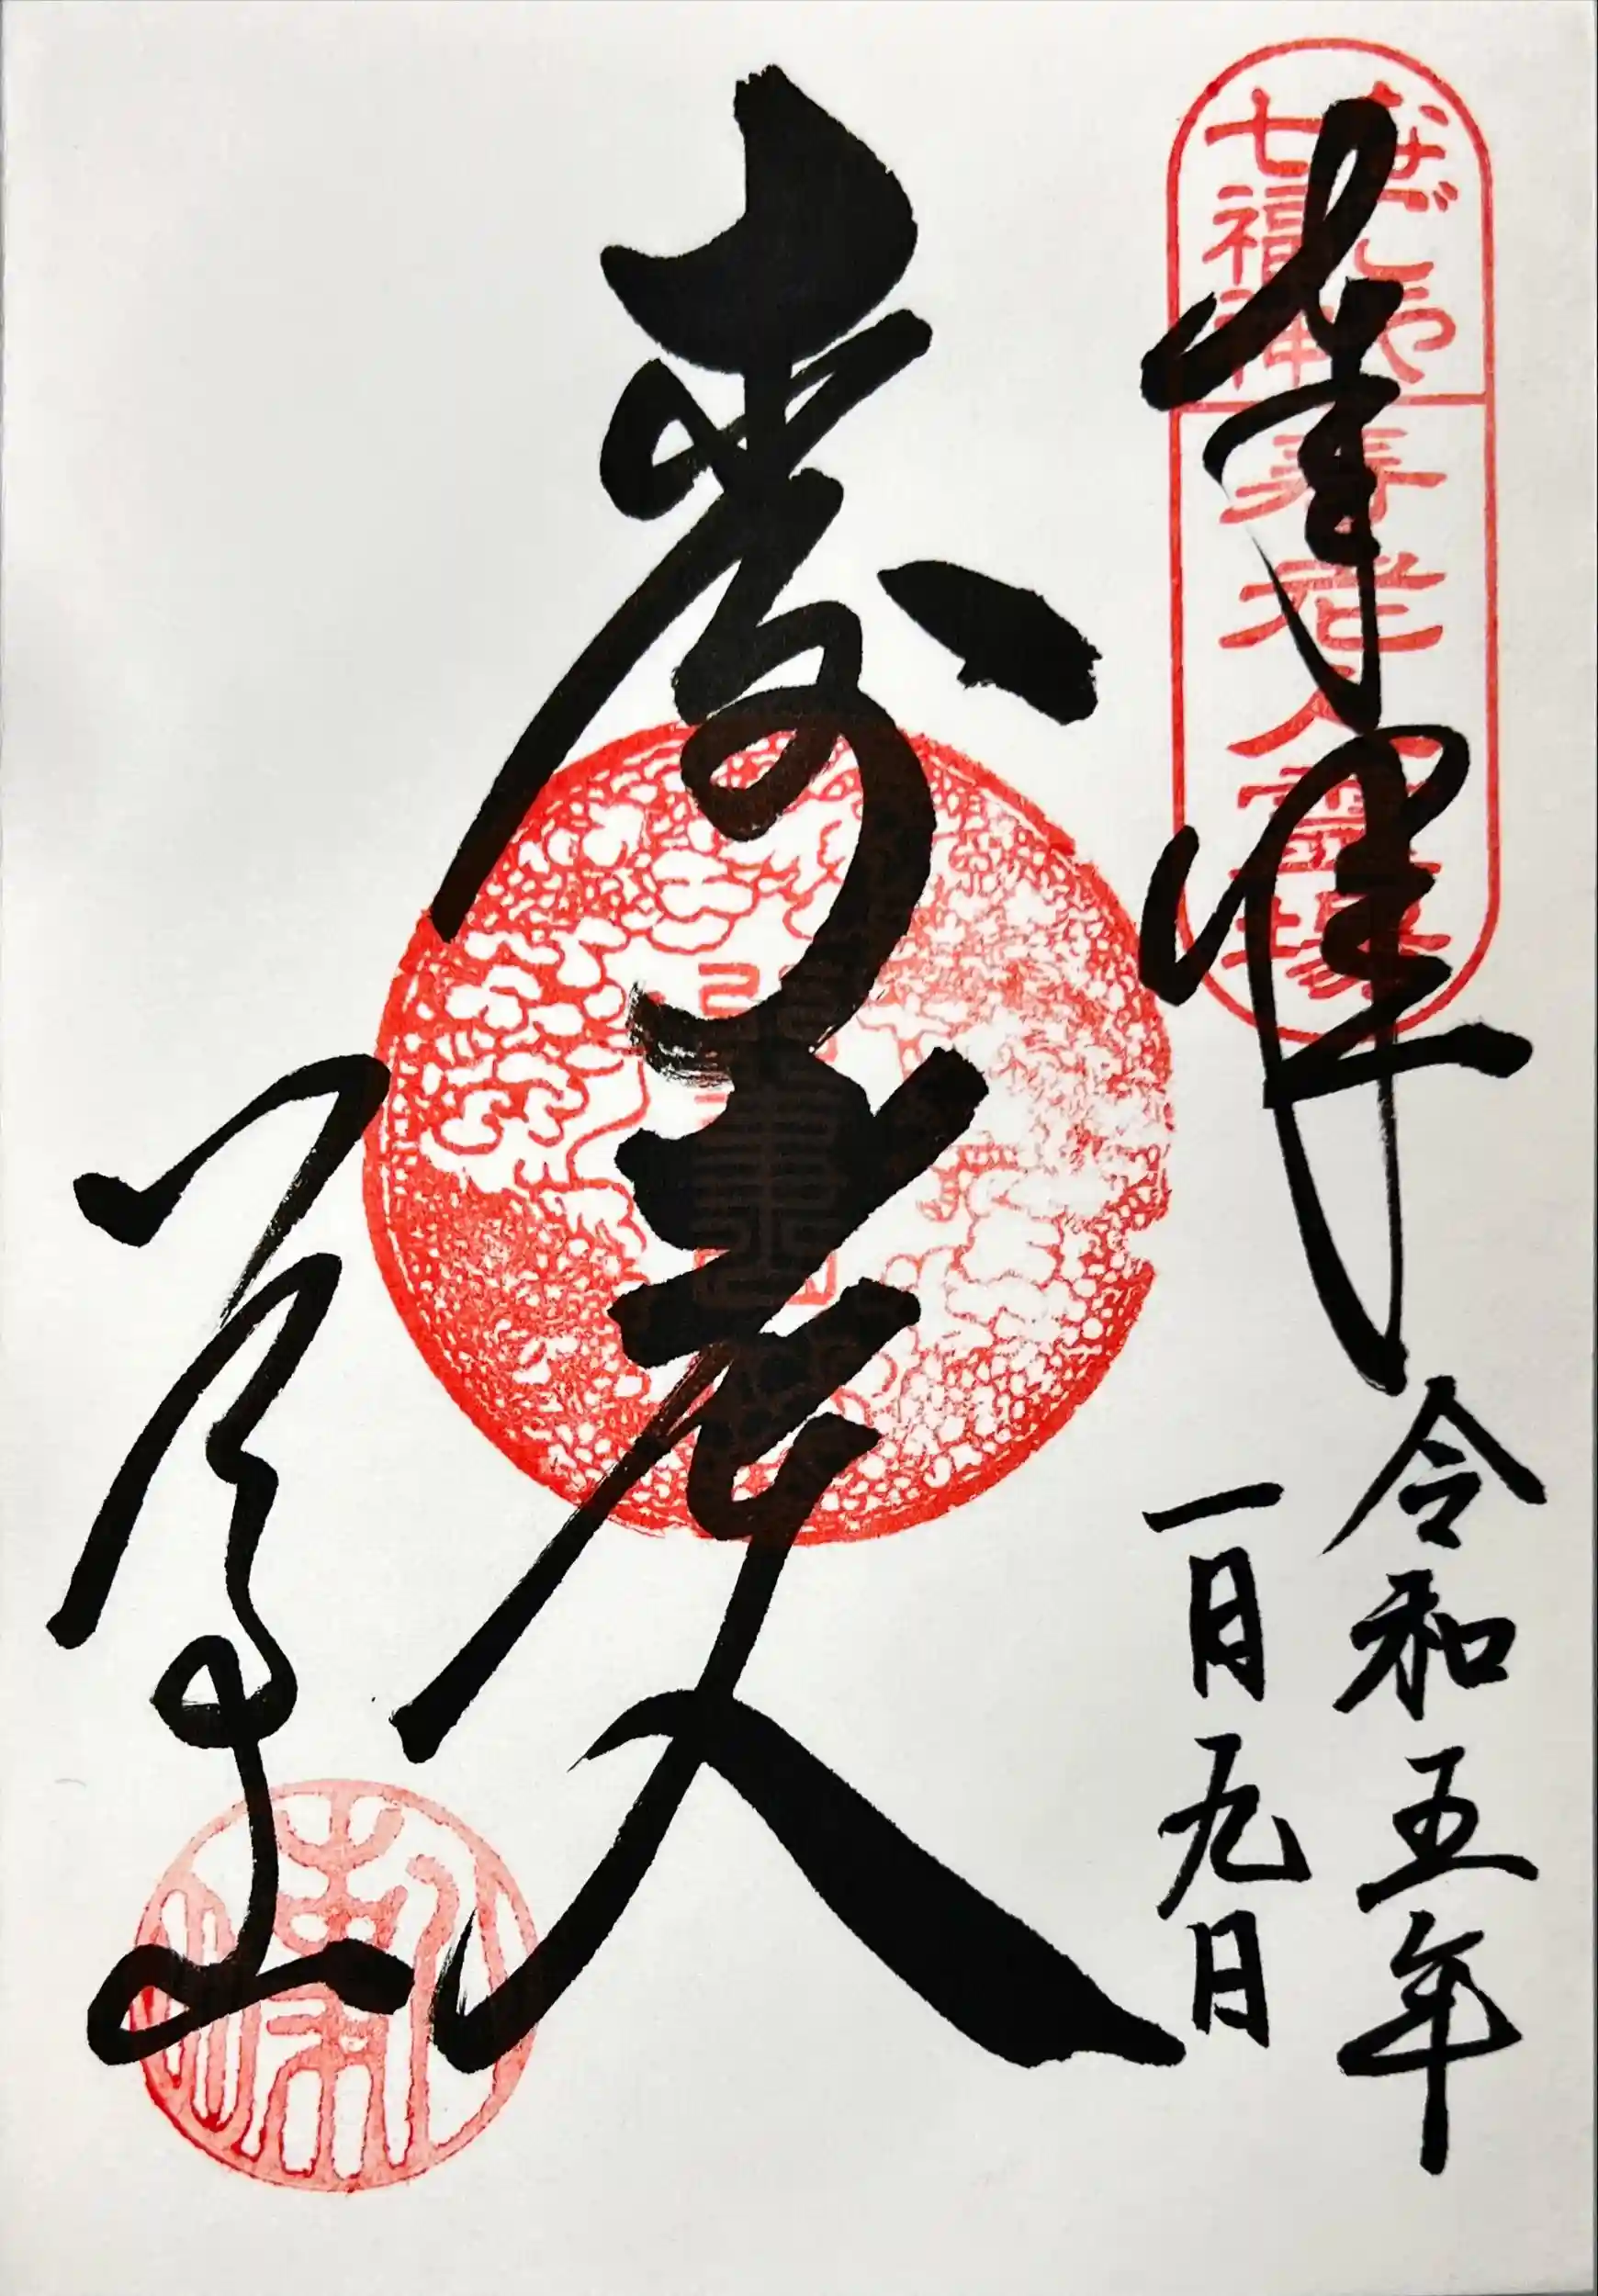 奉拝
なぜんや
七福神
寿老人霊場
令和五年
一月九日
寿老人